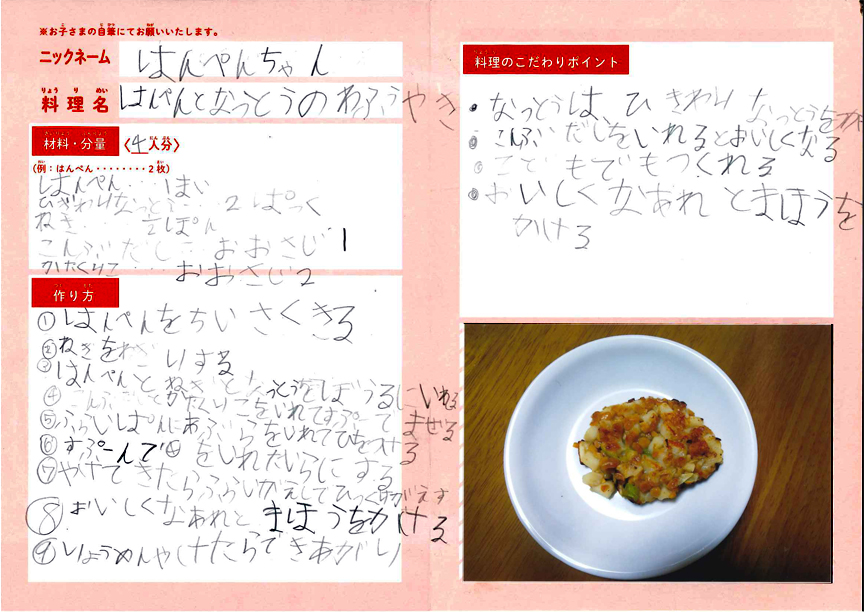 ※お子さまの自筆にてお願いいたします。
ニックネーム はんぺんちゃん
料理名 はんぺんとなっとうのわふうやき
材料・分量 〈4人分〉
(例:はんぺん・・・・・・・・2枚)
はんぺん・・・1まい
ひきわりなっとう・・・2ぱっく
ねぎ・・・1/2ぽん
こんぶだし・・・おおさじ1
かたくりこ・・・おおさじ2
作り方
①はんぺんをちいさくきる
②ねぎを りする
③はんぺんとねぎとなっとうをぼうるにいれる
④こんぶだしとかたくりこをいれてすぷーんでまぜる
⑤ふらいぱんにあぶらをいれてひをつける
⑥すぷーんで④をいれたいらにする
⑦やけてきたらふらいがえしでひっくりかえす
⑧おいしくなあれとまほうをかける
⑨りょうめんやけたらできあがり
料理のこだわりポイント
・なっとうは、ひきわりなっとうを
・こんぶだしをいれるとおいしくなる
・こどもでもつくれる
・おいしくなあれとまほうを
かける